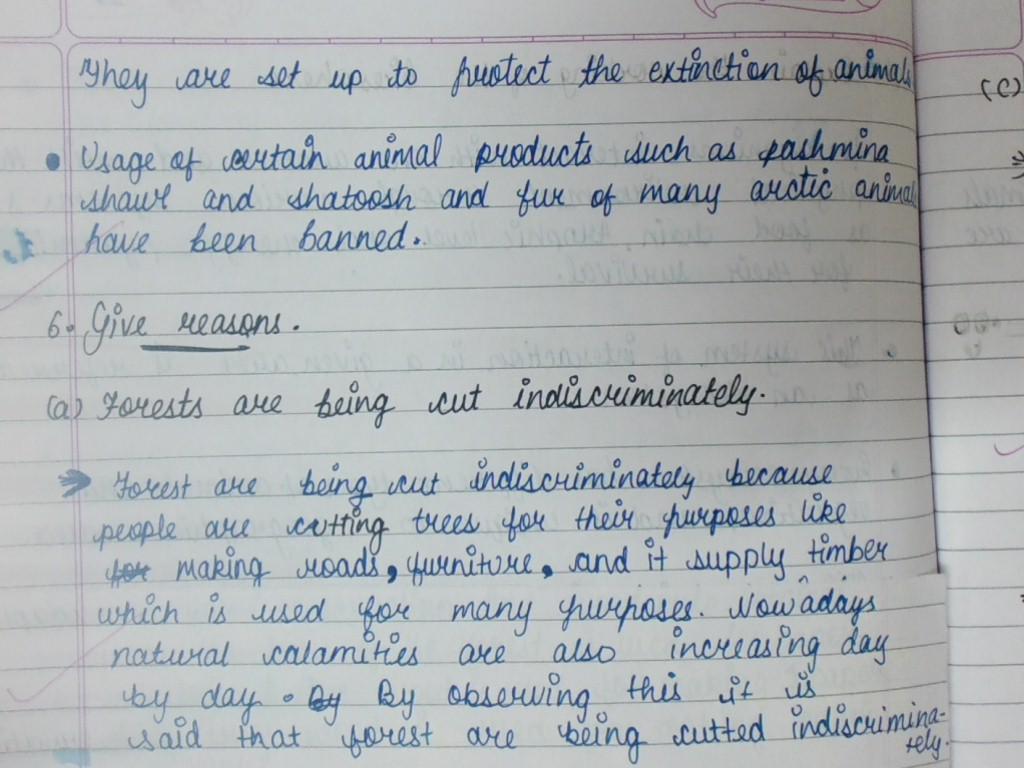 They are set up to protect the extinction of animals
(C)
• Usage of certain animal products such as pashmina
shawl and shatoosh and fur of many arctic animals
have been banned.
6. Give reasons.
(a) Forests are being cut indiscriminately.
Forest are being cut indiscriminately because
people are cutting trees for their purposes like
for making roads, furniture, and it supply timber
which is used for many purposes. Now adays
natural calamities are also increasing day
by day. By By observing this it is
said that forest are being cutted indiscrimina-
tely.